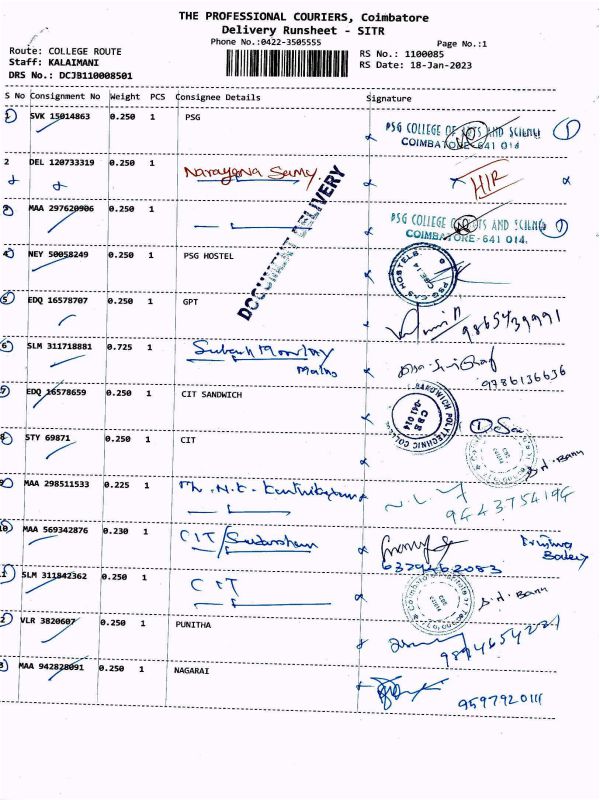 THE PROFESSIONAL COURIERS, Coimbatore
Delivery Runsheet - SITR
Phone No.:0422-3505555
Page No.:1
Route: COLLEGE ROUTE
RS No.: 1100085
Staff: KALAIMANI
RS Date: 18-Jan-2023
DRS No.: DCJB110008501
S No Consignment No Weight PCS Consignee Details Signature
1 SVK 15014863 0.250 1 PSG
PSG COLLEGE OF ARTS AND SCIENCE 1
COIMBATORE-641 014
2 DEL 120733319 0.250 1 Narayana Samy HIR
DOCUMENT DELIVERY
3 MAA 297620906 0.250 1
PSG COLLEGE OF ARTS AND SCIENCE 1
COIMBATORE-641 014.
4 NEY 50058249 0.250 1 PSG HOSTEL
PSG CAS HOSTELS CBE 14
5 EDQ 16578707 0.250 1 GPT
9865439991
6 SLM 311718881 0.725 1
9786136636
7 EDQ 16578659 0.250 1 CIT SANDWICH
SANDWICH POLYTECHNIC COLLEGE CBE 641 014
1
8 STY 69871 0.250 1 CIT
S.H. Banu
9 MAA 298511533 0.225 1
9443754194
10 MAA 569342876 0.230 1 CIT/Sudarsham
6379462083
11 SLM 311842362 0.250 1 CIT
S.H. Banu
12 VLR 3820607 0.250 1 PUNITHA
13 MAA 942828091 0.250 1 NAGARAI
9597920111